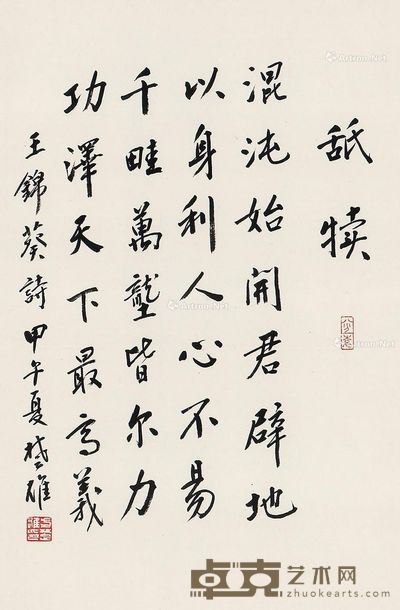 舐犊
混沌始開君辟地
以身利人心不易
千畦萬壟皆尔力
功澤天下最高義
王錦葵詩甲午夏雄
Artron.Net
Artron.Net
Artron.Net
卓克艺术网
zhuokearts.com